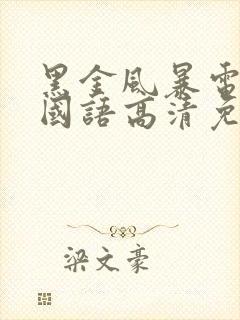 黑金風暴電
國語高清免
梁文豪